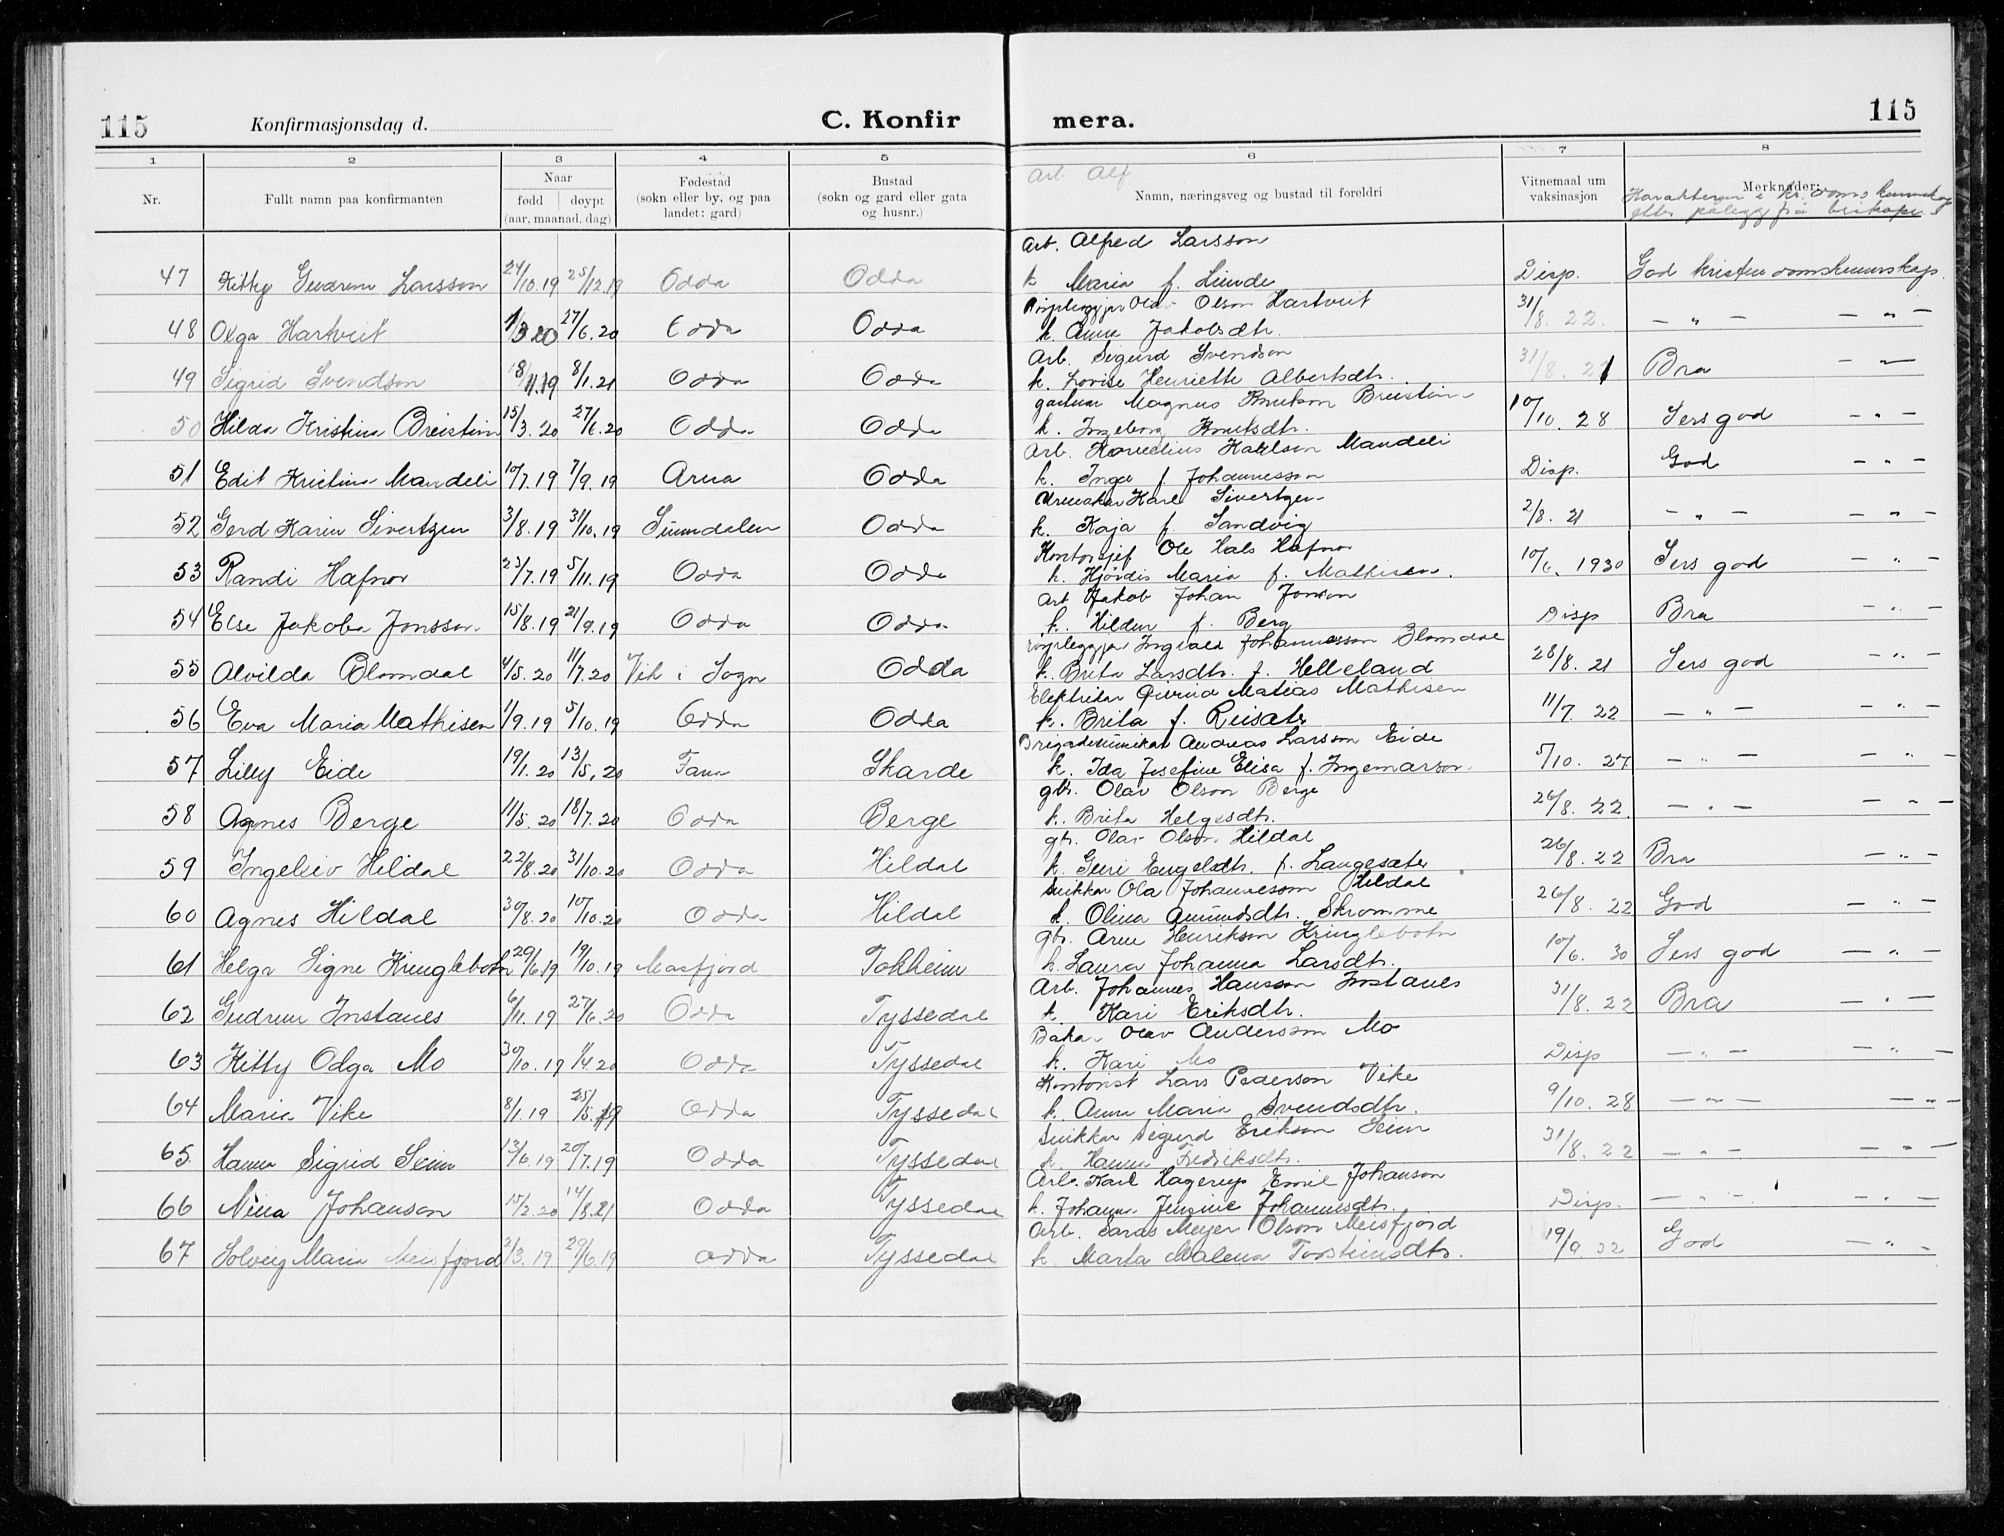 115 Konfirmasjonsdag d. C. Konfir mera. 115
1 2 3 4 5 6 7 8
Nr. Fullt namn paa konfirmanten Naar Fødestad Bustad Namn, næringsveg og bustad til foreldri Vitnemaal um Merknader:
født døypt (sokn eller by, og paa (sokn og gard eller gata vaksinasjon
(aar, maanad, dag) landet: gard) og husnr.)
Art. Alf
etter pålegg frå
Arb. Alfred Larsson
47 Kitty Gudrun Larsson 24/10.19 25/12.19 Odda Odda k Maria f. Disp. God kristendomskunnskap.
Olav Olson Hartveit
48 Olga Hartveit 1/3 20 27/6.20 Odda Odda k. Anna Jakobsdtr. 31/8. 22. — „ — — „ —
Arb. Sigurd Svendson
49 Sigrid Svendson 18/11.19 8/1.21 Odda Odda k. Lovise Henriette Albertsdtr. 31/8. 21 Bra — „ —
Magnus Knutson
50 Hilda Kristina 15/3.20 27/6.20 Odda Odda k. Ingeborg Knutsdtr. 10/10. 28 Sers god — „ —
Arb. Kornelius Karlson Mandeli
51 Edit Kristine Mandeli 10/7.19 7/9.19 Arna Odda k. Inga f. Johannesson Disp. God — „ —
Karl Sivertzen
52 Gerd Karin Sivertzen 3/8.19 31/10.19 Sunndalen Odda k. Kaja f. Sandvig 2/8. 21 — „ — — „ —
Kontorsjef Ole Hals Hafnor
53 Randi Hafnor 23/7.19 5/11.19 Odda Odda k. Hjørdis Maria f. Mathisen. 10/6. 1930 Sers god — „ —
Arb Jakob Johan Jonson
54 Else Jakoba Jonsson 15/8.19 21/9.19 Odda Odda k. Hildur f. Berg Disp Bra — „ —
Ingvald Johannesson Blomdal
55 Alvilda Blomdal 4/5.20 11/7.20 Vik i Sogn Odda k. Brita Larsdtr. f. Helleland 28/8. 21 Sers god — „ —
Elektrikar Øivind Matias Mathisen
56 Eva Maria Mathisen 1/9.19 5/10.19 Odda Odda k. Brita f. Reisæter 11/7. 22 — „ — — „ —
Andreas Larsson Eide
57 Lilly Eide 19/1.20 13/5.20 Fana Skarde k. Ida Josefine Elisa f. Ingemarson 5/10. 27 — „ — — „ —
gbr. Olav Olson Berge
58 Agnes Berge 11/5.20 18/7.20 Odda Berge k. Brita Helgesdtr. 26/8. 22. — „ — — „ —
gbr. Olav Olson Hildal
59 Ingeleiv Hildal 22/8.20 31/10.20 Odda Hildal k. Guri Engelsdtr. f. Langesæter 26/8. 22 Bra — „ —
Snikkar Ola Johannesson Hildal
60 Agnes Hildal 30/8.20 10/10.20 Odda Hildal k. Olina Amundsdtr. Skromme 26/8. 22 God — „ —
gbr. Arne Henrikson Kringlebotn
61 Helga Signe Kringlebotn 29/6.19 19/10.19 Masfjord Tokheim k. Laura Johanna Larsdtr. 10/6. 30 Sers god — „ —
Arb. Johannes Hansson Instanes
62 Gudrun Instanes 6/11.19 27/6.20 Odda Tyssedal k Kari Eriksdtr. 31/8. 22 Bra — „ —
Bakar Olav Anderson Mo
63 Kitty Odga Mo 30/10.19 11/4.20 Odda Tyssedal k. Kari Mo Disp — „ — — „ —
Kontorist Lars Pederson Vike
64 Maria Vike 8/1.19 25/5.19 Odda Tyssedal k. Anna Maria Svendsdtr. 9/10. 28 — „ — — „ —
Snikkar Sigurd Erikson Seim
65 Hanna Sigrid Seim 13/6.19 20/7.19 Odda Tyssedal k. Hanna Fredriksdtr. 31/8. 22 — „ — — „ —
Arb. Karl Hagerup Emil Johanson
66 Nina Johanson 15/2.20 14/8.21 Odda Tyssedal k. Johanna Jensine Johannesdtr. Disp. — „ — — „ —
Arb. Saras Meyer Olson Meisfjord
67 Solveig Maria Meisfjord 2/3.19 29/6.19 Odda Tyssedal k. Marta Malena Torsteinsdtr. 19/9 32 God — „ —